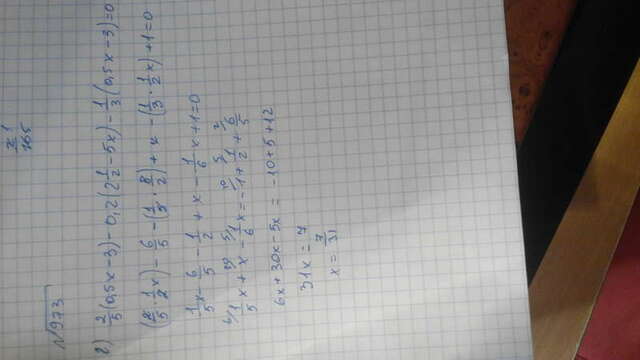 x 1
165
№973
г) 2/5(0,5x-3)-0,2(2 1/2-5x)-1/3(0,5x-3)=0
(2/5·1/2x)-6/5-(1/5·5/2)+x-(1/3·1/2x)+1=0
1/5x-6/5-1/2+x-1/6x+1=0
1/5x+x-1/6x=-1+1/2+6/5
6x+30x-5x=-10+5+12
31x=7
x=7/31